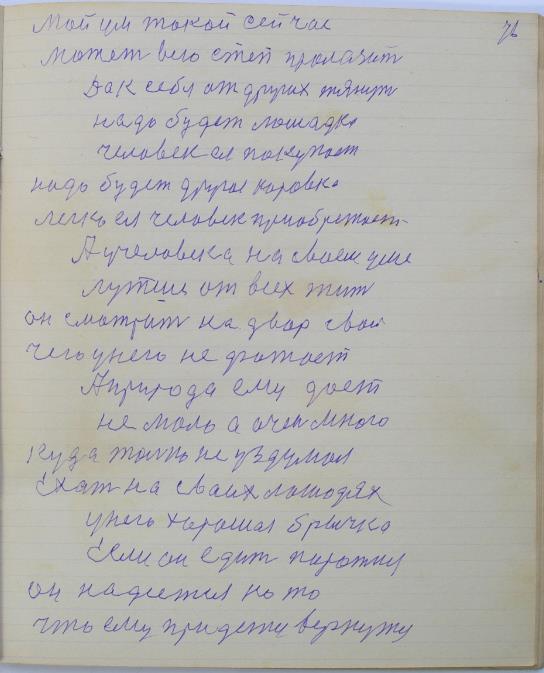 76
Мой ум такой сейчас
Может всю степ пролазит
Дак себя от других тянут
надо будет лошадка
человек ея покупает
надо будет другая коровка
легко ея человек приобретает
А учеловека на своем уме
лутше от всех жит
он смотрит на двор свой
чего унего не фатает
Априрода ему дает
не мало а очен много
куда толко не уздумал
Ехат на своих лошодях
унего хорошая бричка
Если он едит
он надеется на то
что ему придется вернутся